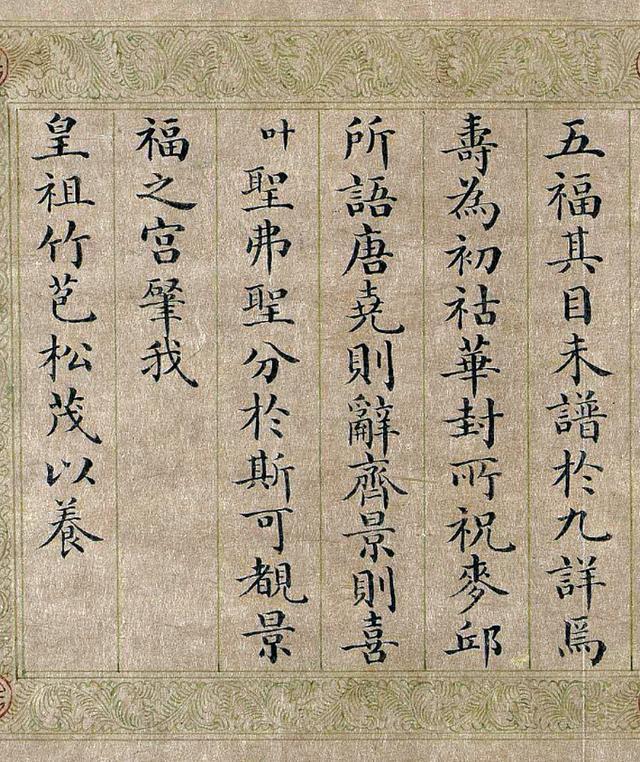 五福其目未譜於九詳焉
壽為初祜華封所祝麥邱
所語唐堯則辭齊景則喜
叶聖弗聖分於斯可覩景
福之宮肇我
皇祖竹苞松茂以養